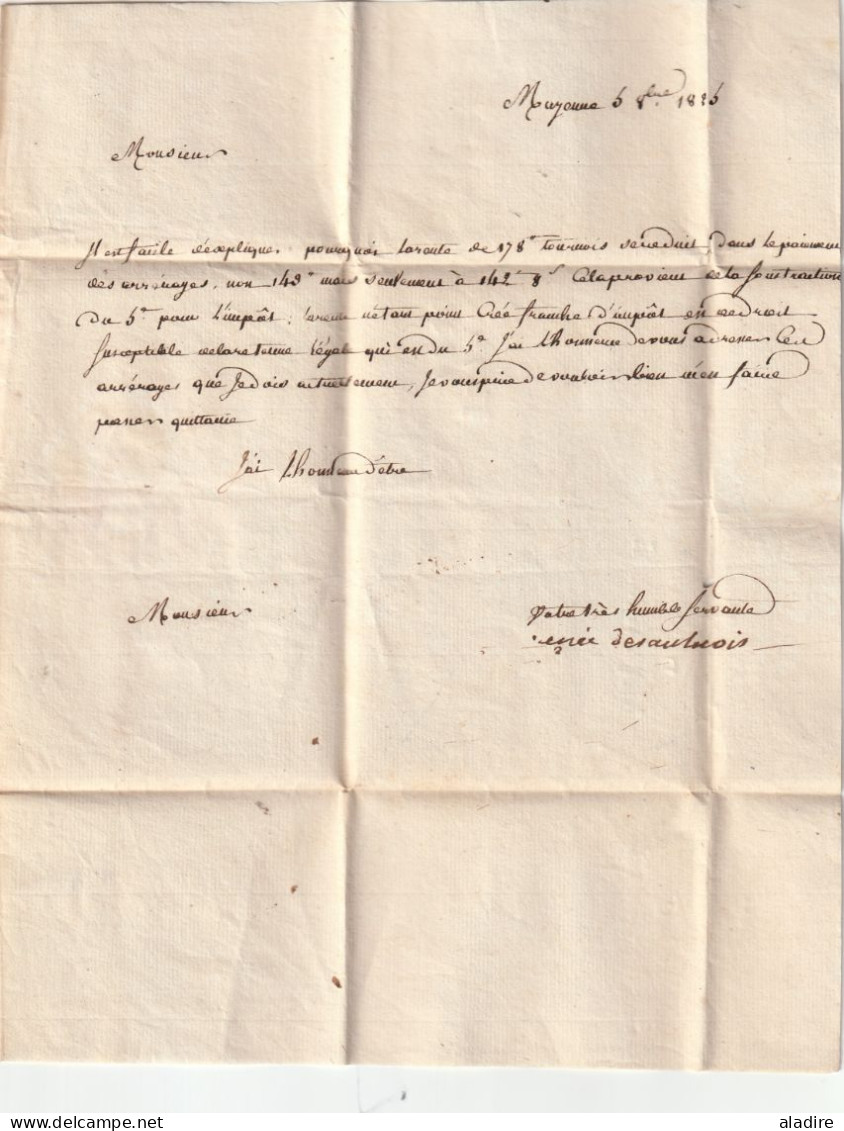 Mayenne 5 8bre 1825
Monsieur
Il est facile d'expliquer pourquoi la rente de 178# tournois se reduit, dans le paiement
des arrérages, non 143# mais seulement à 142# 8s Cela provient de la soustraction
du 5e pour l'impôt; la rente n'etant point Créé franche d'impôt en de droit
susceptible de la retenue légale qui est du 5e J'ai l'honneur de vous adresser les
arrérages que Je dois actuellement, Je vous prie de vouloir bien m'en faire
passer quittance
J'ai l'honneur d'être
Monsieur
Votre très humble servante
desaulnois
© aladire
delcampe.net